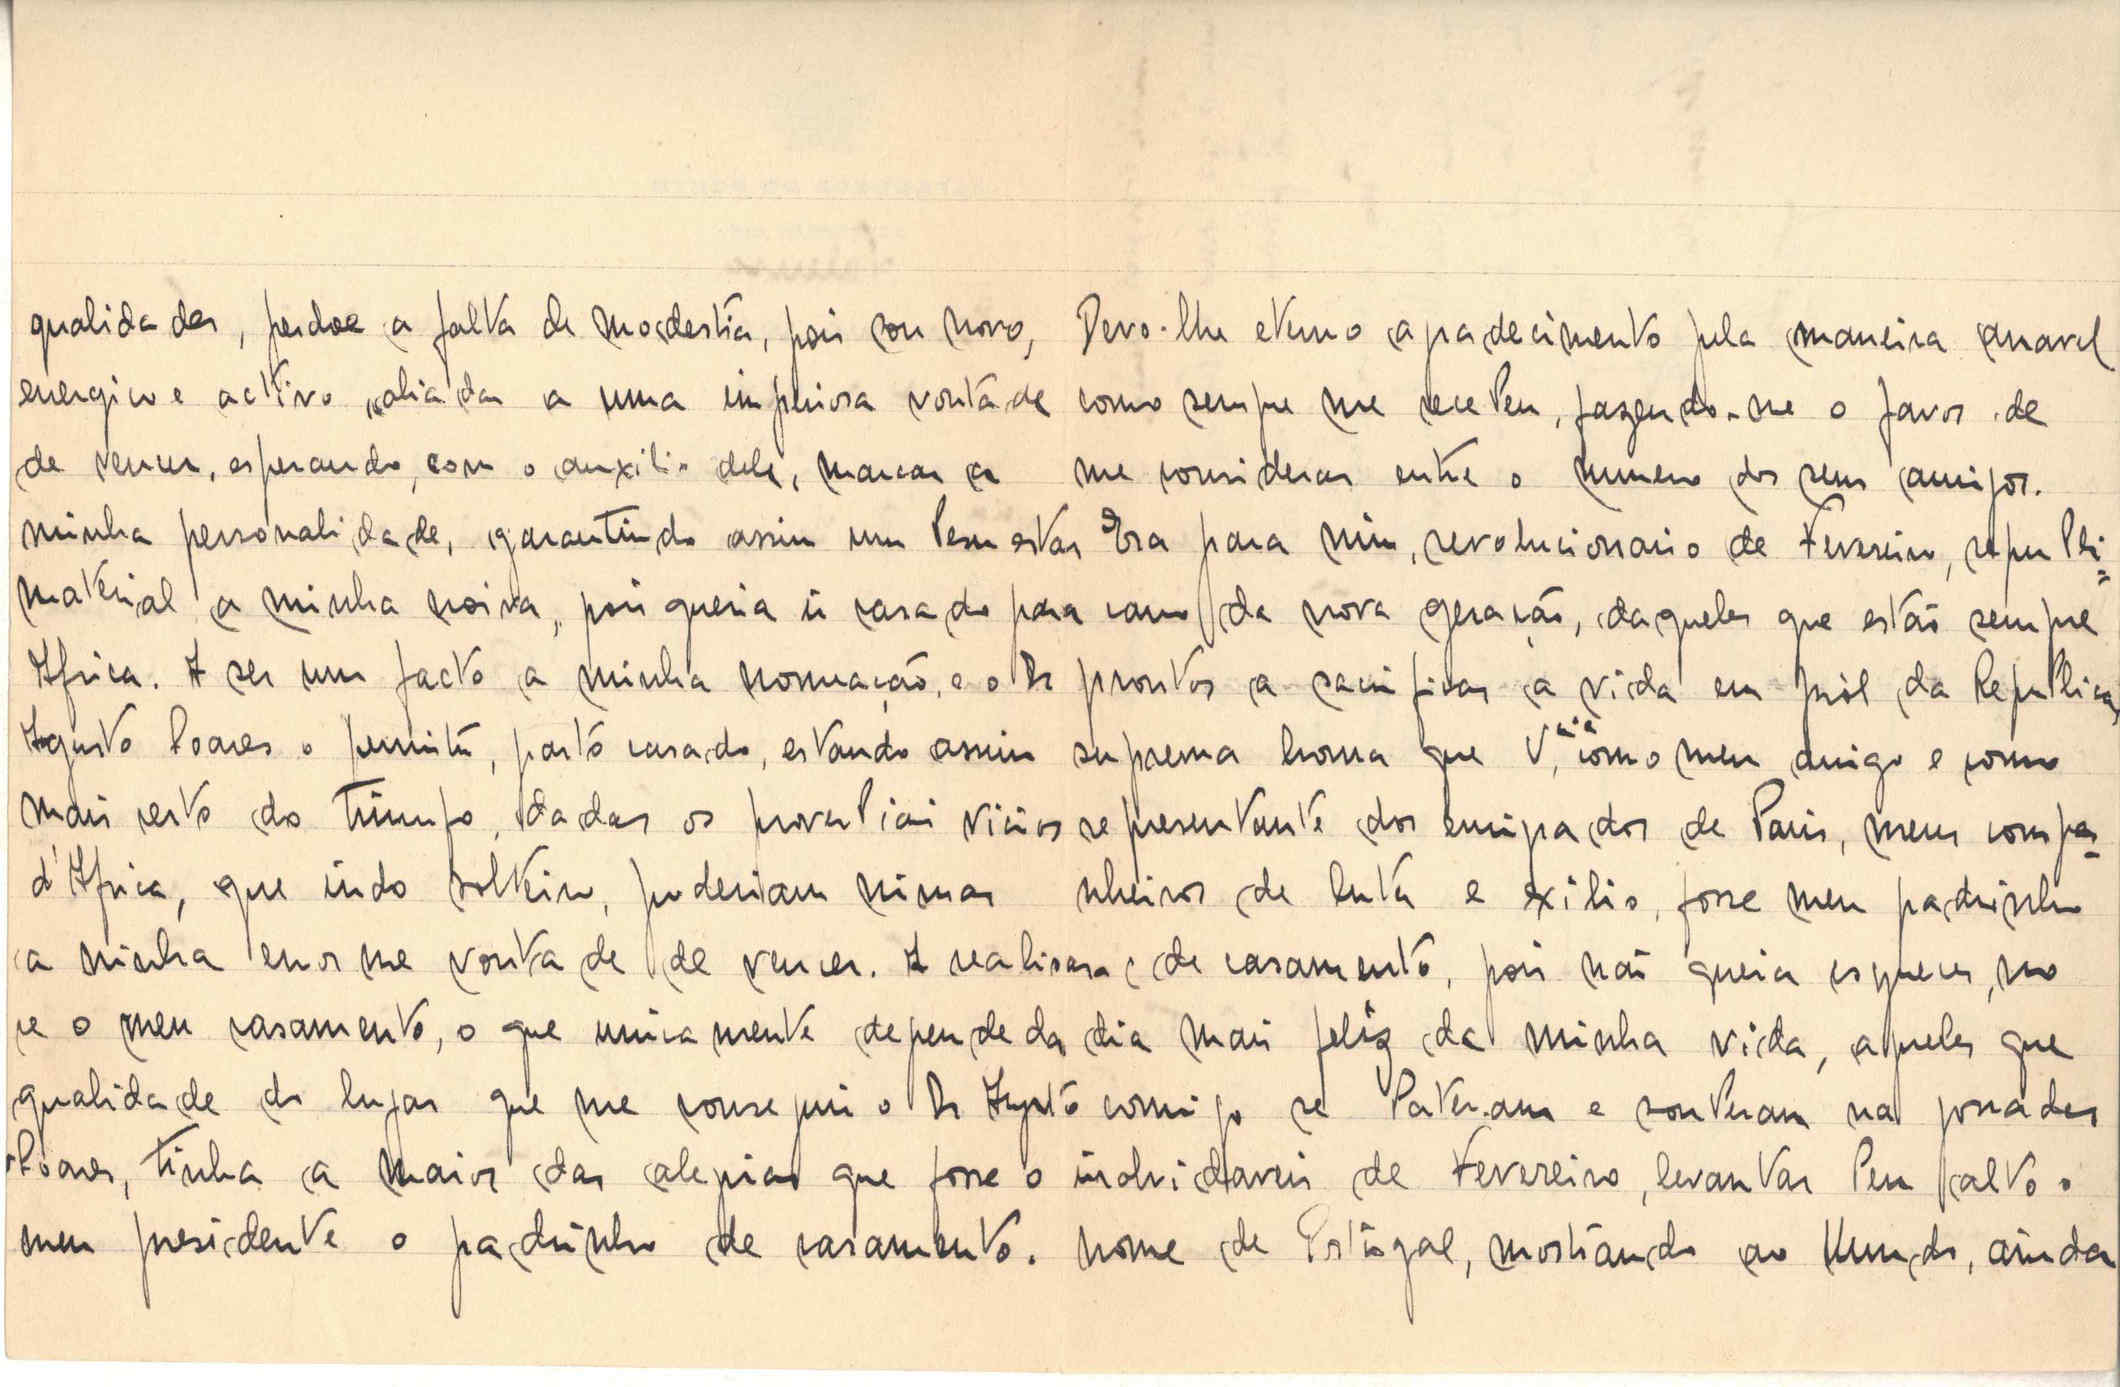 qualidades, perdoe a falta de modestia, pois sou novo,
energico e activo, aliadas a uma imperiosa vontade
de vencer, esperando, com o auxilio dele, marcar a
minha personalidade, garantindo assim um bem estar
material a minha noiva, pois queria ir casado para
Africa. A ser um facto a minha nomeação, e o Dr
Agusto Soares o permitir, parto casado, estando assim
mais certo do triunfo, dadas os proverbiais vicios
d'Africa, que indo solteiro, poderiam minar
a minha enorme vontade de vencer. A realisar-
se o meu casamento, o que unicamente depende da
qualidade do lugar que me conseguir o Dr Agusto
Soares, tinha a maior das alegrias que fosse o
meu presidente o padrinho de casamento.
Devo-lhe eterno agradecimento pela maneira amavel
como sempre me recebeu, fazendo-me o favor de
me considerar entre o numero dos seus amigos.
Era para mim, revolucionario de Fevereiro, republi-
cano da nova geração, daqueles que estão sempre
prontos a sacrificar a vida em pról da Republica,
suprema honra que V. como meu amigo e como
representante dos emigrados de Paris, meus compa-
nheiros de luta e exilio, fosse meu padrinho
de casamento, pois não queria esquecer, no
dia mais feliz da minha vida, aqueles que
comigo se bateram e souberam na jornadas
inolvidaveis de Fevereiro, levantar bem alto o
nome de Portugal, mostrando ao Mundo, ainda